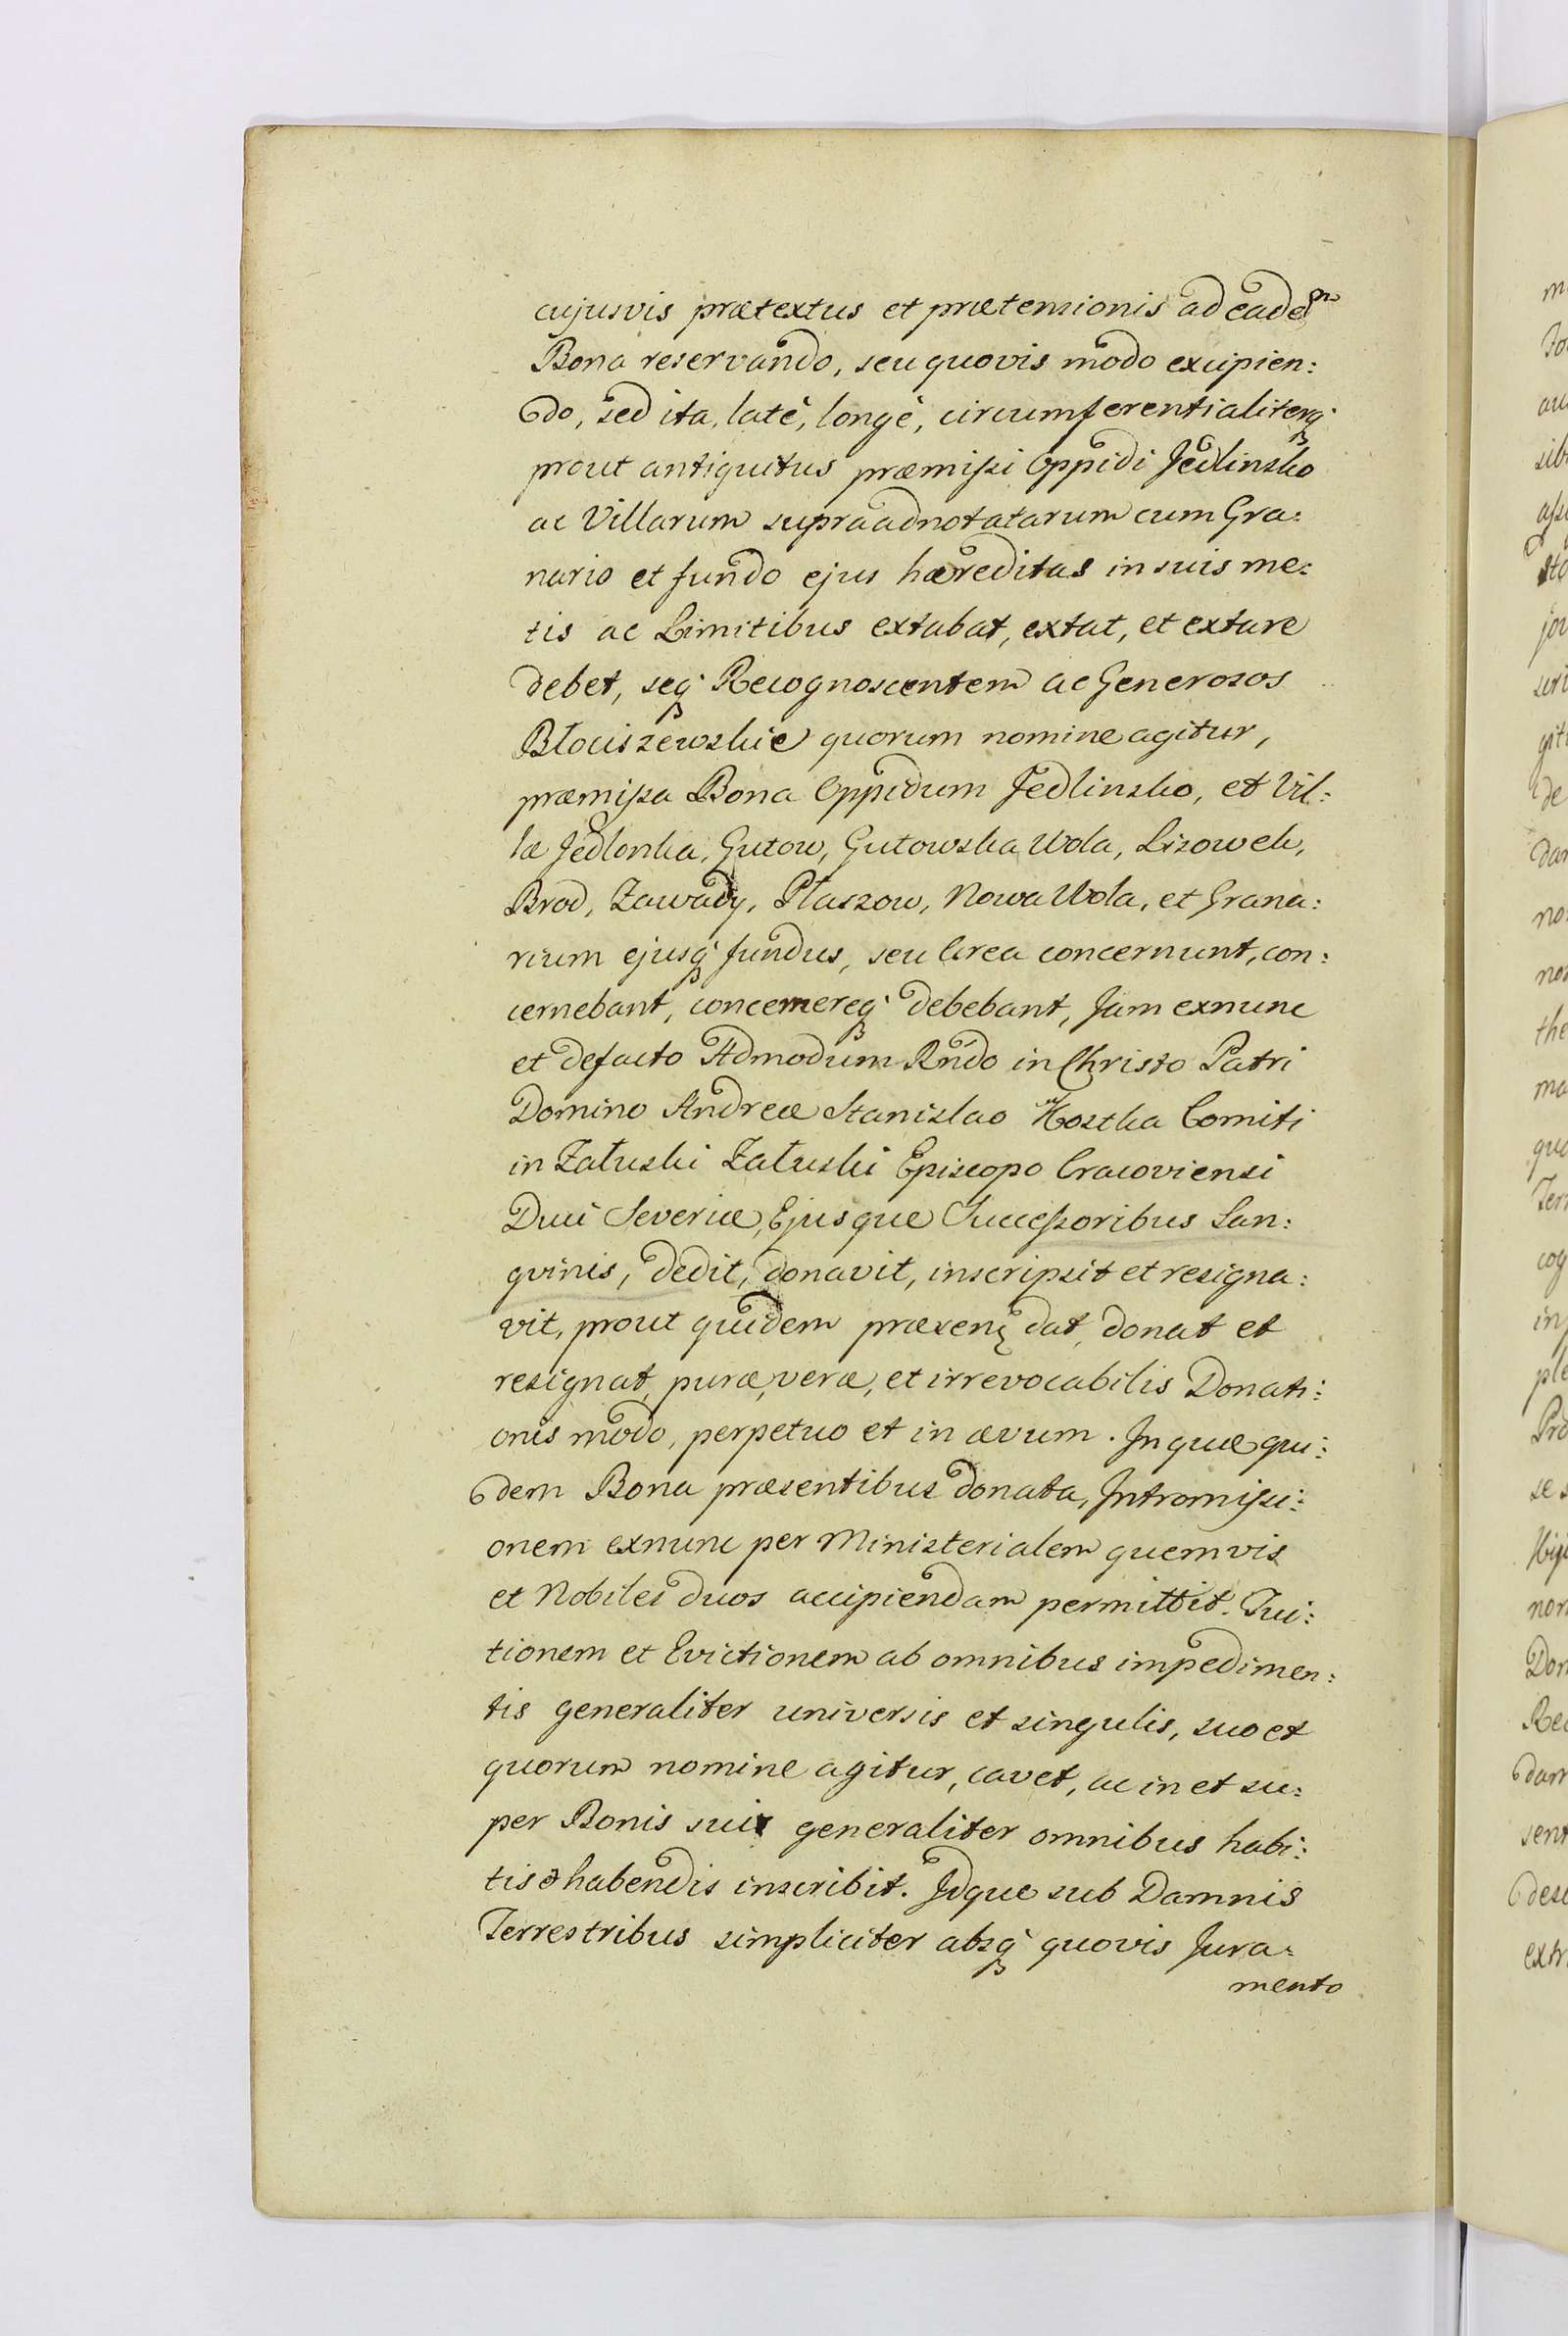 cujusvis prætextus et prætensionis ad eadem
Bona reservando, seu quovis modo excipien:
do, sed ita, latè, longè, circumferentialiterq;
prout antiquitus præmissi Oppidi Jedlinsko
ac Villarum supraadnotatarum cum Gra:
nario et fundo ejus hæreditas in suis me:
tis ac Limitibus extabat, extat, et extare
debet, seq; Recognoscentem ac Generosos
Błociszewskie quorum nomine agitur,
præmissa Bona Oppidum Jedlinsko, et Vil:
læ Jedlonka, Gutow, Gutowska Wola, Lisowek,
Brod, Zawady, Płaszow, Nowa Wola, et Grana:
rium ejusq; fundus, seu Area concernunt, con:
cernebant, concernereq; debebant, Jam exnunc
et defacto Admodum Rndo in Christo Patri
Domino Andreæ Stanislao Kostka Comiti
in Załuski Załuski Episcopo Cracoviensi
Duci Severiæ, Ejusque Successoribus San:
gvinis, dedit, donavit, inscripsit et resigna:
vit, prout quidem præsens dat, donat et
resignat, puræ, veræ, et irrevocabilis Donati:
onis modo, perpetuo et in ævum. In quæ qui:
dem Bona præsentibus donata, Intromissi:
onem exnunc per Ministerialem quemvis
et Nobiles duos accipiendam permittit. Tui:
tionem et Evictionem ab omnibus impedimen:
tis generaliter universis et singulis, suo et
quorum nomine agitur, cavet, ac in et su:
per Bonis suis generaliter omnibus habi:
tis & habendis inscribit. Idque sub Damnis
Terrestribus simpliciter absq; quovis Jura:
mento